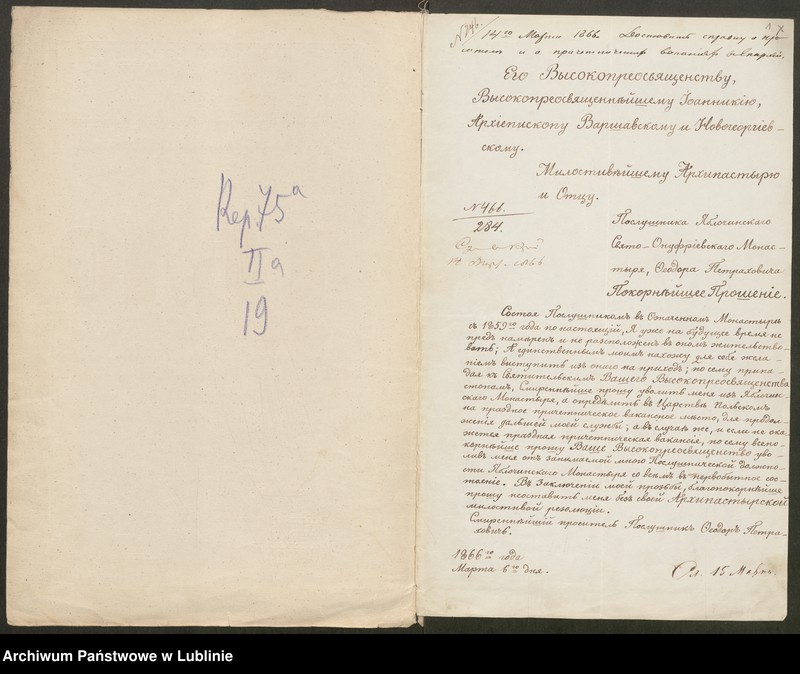 Rep. 75 a
II a
19
1
№ 246.
14го Марта 1866. Доставить справку о про-
и о причетническ вакансіи
Его Высокопреосвященству,
Высокопреосвященнѣйшему Іоанникію,
Архіепископу Варшавскому и Новогеоргіев-
скому.
Милостивѣйшему Архипастырю
и Отцу.
№ 466.
284.
14 1866
Послушника Яблочинскаго
Свято-Онуфріевскаго Монас-
тыря, Ѳеодора Петраховича
Покорнѣйшее Прошеніе.
Состоя Послушникомъ въ Означенномъ Монастырѣ
съ 1859го года по настоящій, Я уже на будущее время не
предъ намѣренъ и не расположенъ въ ономъ жительство-
вать; А единственнымъ моимъ нахожу для себя жела-
ніемъ выступить изъ онаго на приходъ; по сему припа-
дая къ Святительскимъ Вашего Высокопреосвященства
стопамъ, Смиреннѣйше прошу уволить меня изъ Яблочин-
скаго Монастыря, а опредѣлить въ Царствѣ Польскомъ
на праздное причетническое вакансное мѣсто, для продол-
женія дальшей моей службы; а въ случаѣ же, и если не ока-
жется праздная причетническая вакансія, по сему всепо-
корнѣйше прошу Ваше Высокопреосвященство уво-
ливъ меня отъ занимаемой мною Послушнической должно-
сти Яблочинскаго Монастыря со всемъ въ первобытное сос-
тояніе. Въ Заключеніи моей прозьбы, благопокорнѣйше
прошу неоставить меня безъ своей Архипастырской
милостивой резолюціи.
Смиреннѣйшій проситель Послушникъ Ѳеодоръ Петра-
ховичъ.
1866го года
Марта 6го дня.
15 Марта.
Archiwum Państwowe w Lublinie